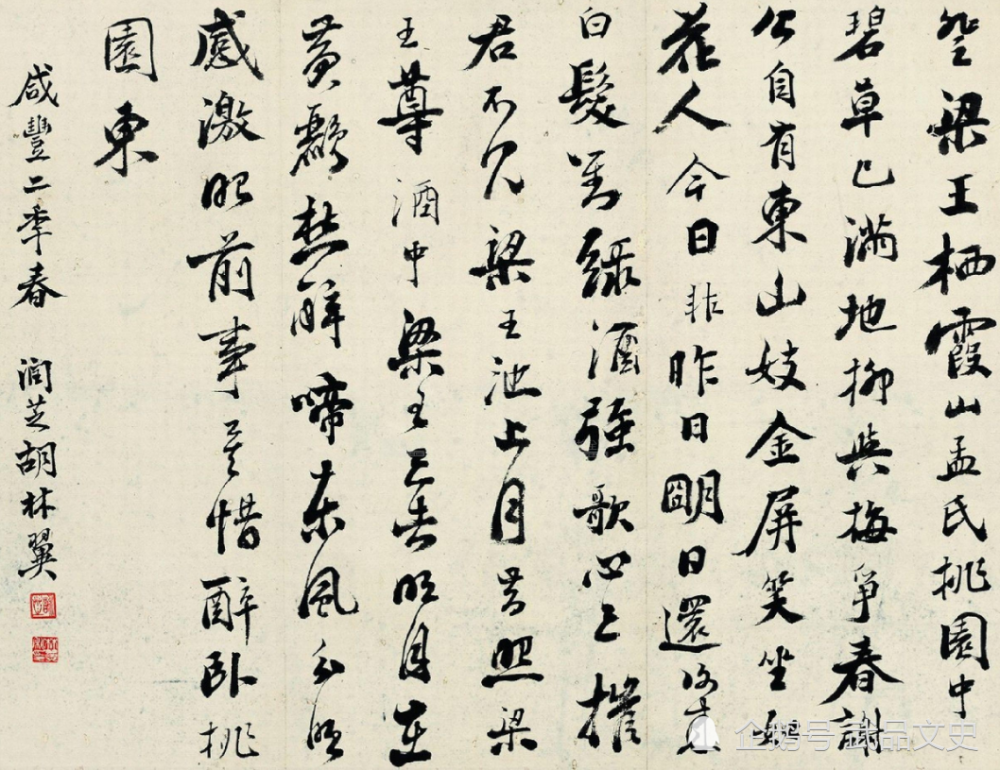 登梁王栖霞山孟氏桃園中
碧草已滿地柳與梅爭春謝
公自有東山妓金屏笑坐如
花人今日非昨日明日還復来
白髮對綠酒強歌心已摧
君不见梁王池上月昔照梁
王尊酒中梁王已去明月在
黄鸝愁醉啼春風分明
感激眼前事莫惜醉卧桃
園東
咸豐二年春 潤芝胡林翼
企鹅号 品文史